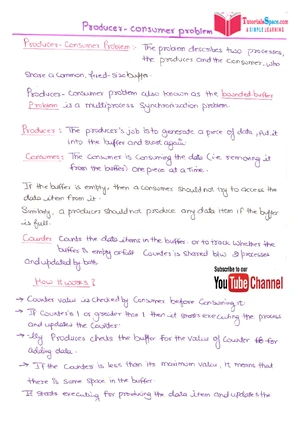 Producer-consumer problem
TutorialsSpace.com
A SIMPLE LEARNING
Producer-Consumer Problem :- The problem describes two processes,
the producer and the consumer, who
share a common, fixed-size buffer.
Producer-Consumer problem also known as the bounded buffer
Problem is a multiprocess synchronization problem.
Producer : The producer's job is to generate a piece of data, put it
into the buffer and start again.
Consumer : The consumer is consuming the data (i.e. removing it
from the buffer) one piece at a time.
If the buffer is empty, then a consumer should not try to access the
data item from it.
Similarly, a producer should not produce any data item if the buffer
is full.
Counter Counts the data items in the buffer. or to track whether the
buffer is empty or full. Counter is shared b/w 2 processes
and updated by both
How it works?
Subscribe to our
YouTube Channel
→ Counter value is checked by consumer before consuming it.
→ If counter is 1 or greater than 1 then it starts executing the process
and updates the counter.
→ lly Producer checks the buffer for the value of Counter for
adding data.
→ If the counter is less than its maximum value, it means that
there is some space in the buffer.
It starts executing for producing the data item and updates the